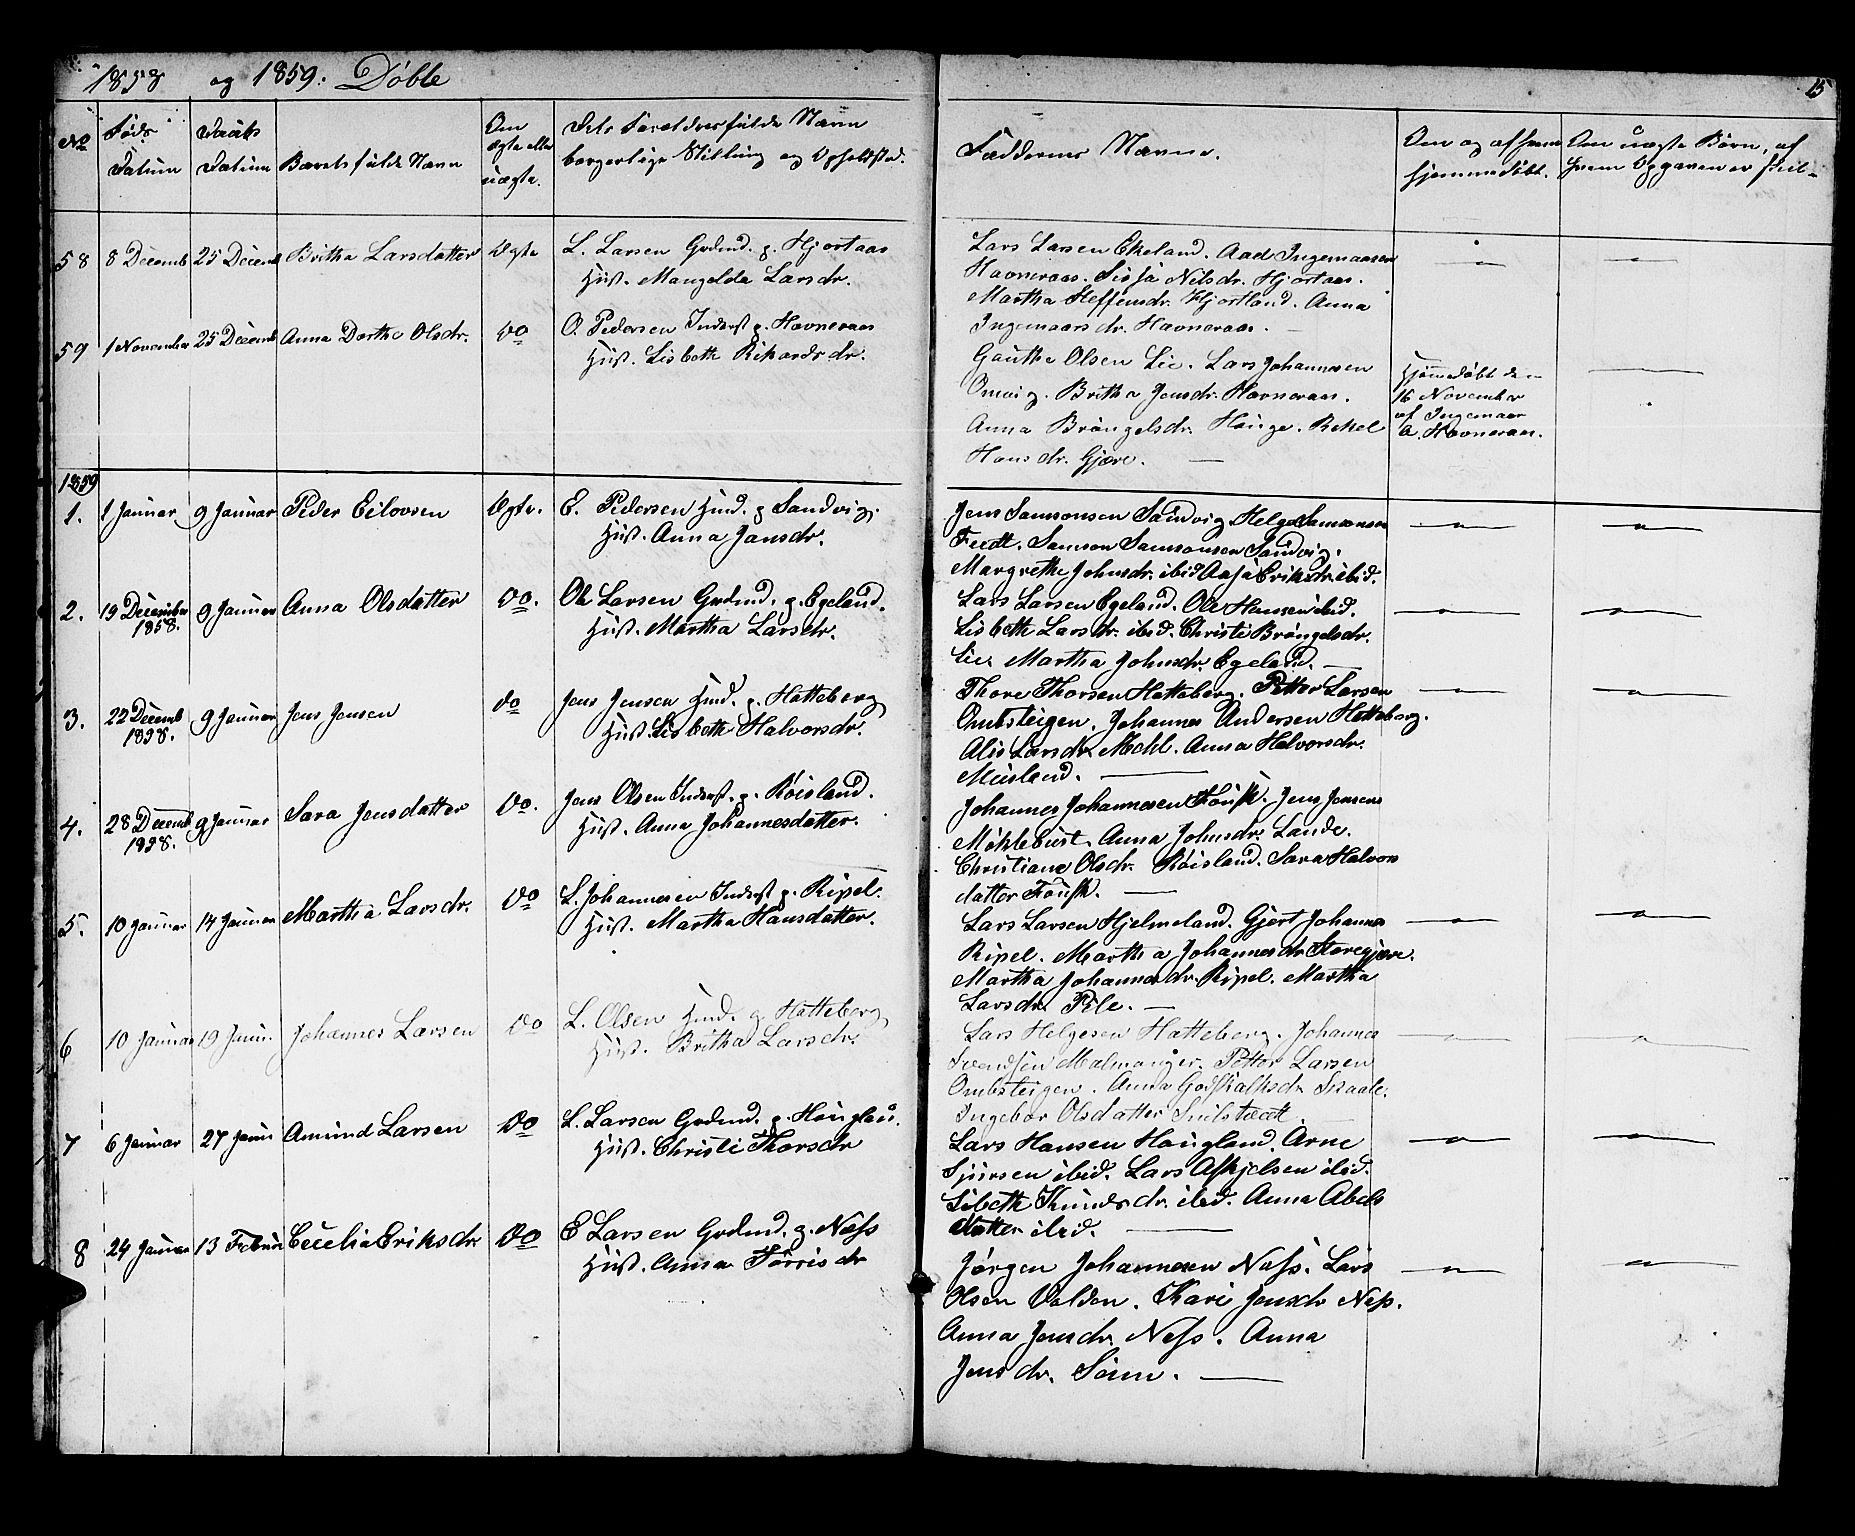 1858 og 1859. Døbte
15
No
Føds Datum
Daabs Datum
Barnets fulde Navn
Om ægte eller uægte.
Dets Forældres fulde Navn
borgerlige Stilling og Opholdsted.
Faddernes Navne.
Om og af hvem
hjemmedøbt.
Om uægte Børn, af
hvem Opgaven er skeet
58 8 Decemb 25 Decemb Britha Larsdatter Ægte L. Larsen Grdmd. p. Hjortaas
Hust. Mangelda Larsdr.
Lars Larsen Ekeland. Aad Ingemaarsen
Havneraas. Sissa Nilsdr. Hjortaas.
Martha Steffensdr. Hjortland. Anna
Ingemaarsdr. Havneraas.
59 1 November 25 Decemb Anna Dorthe Olsdr. Do O. Pedersen Inderst p. Havneraas
Hust. Lisbeth Rikardsdr.
Gauthe Olsen Lie. Lars Johannesen
Omvig. Britha Jensdr. Havneraas.
Anna Brøngelsdr. Hauge. Rakel
Hansdr. Gjære.
Hjemdøbt den
16 November
af Ingemaar
A. Havneraas.
1859
1. 1 Januar 9 Januar Peder Eilovsen Ægte. E. Pedersen Husd. p Sandvig.
Hust. Anna Jansdr.
Jens Samsonsen Sandvig Helge Samsonsen
Tvedt. Samson Samsonsen Sandvig.
Margrethe Johnsdr. ibid Aasa Eriksdr. ibid.
2. 19 December 1858. 9 Januar Anna Olsdatter Do. Ole Larsen Grdmd. p. Egeland.
Hust. Martha Larsdr.
Lars Larsen Egeland. Ole Hansen ibid.
Lisbeth Larsdr. ibid. Christi Brøngelsdr.
Lie. Martha Johnsdr. Egeland.
3. 22 Decemb 1858. 9 Januar Jens Jensen Do Jens Jensen Husd. p. Hatteberg
Hust. Lisbeth Halvorsdr.
Thore Thorsen Hatteberg. Petter Larsen
Ombsteigen. Johannes Andersen Hatteberg.
Alis Larsdr. Mehl. Anna Halvorsdr.
Musland.
4. 28 Decemb 1858. 9 Januar Sara Jensdatter Do. Jens Olsen Inderst. p. Røisland.
Hust. Anna Johannesdatter.
Johannes Johannesen Fousk. Jens Jensens
Møklebust. Anna Johnsdr. Lande.
Christiane Olsdr. Røisland. Sara Halvors
datter Fousk.
5. 10 Januar 14 Januar Martha Larsdr. Do L. Johannesen Inderst p. Ripel.
Hust. Martha Hansdatter.
Lars Larsen Hjelmeland. Gjert Johannes
Ripel. Martha Johannesdr. Storegjære.
Martha Johannesdr. Ripel. Martha
Larsdr. Pile.
6 10 Januar 19 Janu. Johannes Larsen Do L. Olsen Husd. p. Hatteberg
Hust. Britha Larsdr.
Lars Helgesen Hatteberg. Johannes
Svendsen Malmanger. Petter Larsen
Ombsteigen. Anna Godskalksdr. Skaale.
Ingebor Olsdatter
7 6 Januar 27 Janu Amund Larsen Do L. Larsen Grdmd. p. Hougland.
Hust. Christi Thorsdr
Lars Hansen Hougland. Arne
Sjursen ibid. Lars Askjelsen ibid.
Lisbeth Knudsdr. ibid. Anna Abels
datter ibid.
8 24 Januar 13 Februar Cecelia Eriksdr. Do E Larsen Grdmd. p. Næss
Hust. Anna Tørrisdr
Jørgen Johannesen Næss. Lars
Olsen Valden. Kari Jensdr Næss.
Anna Jensdr. Næss. Anna
Jensdr. Seim.